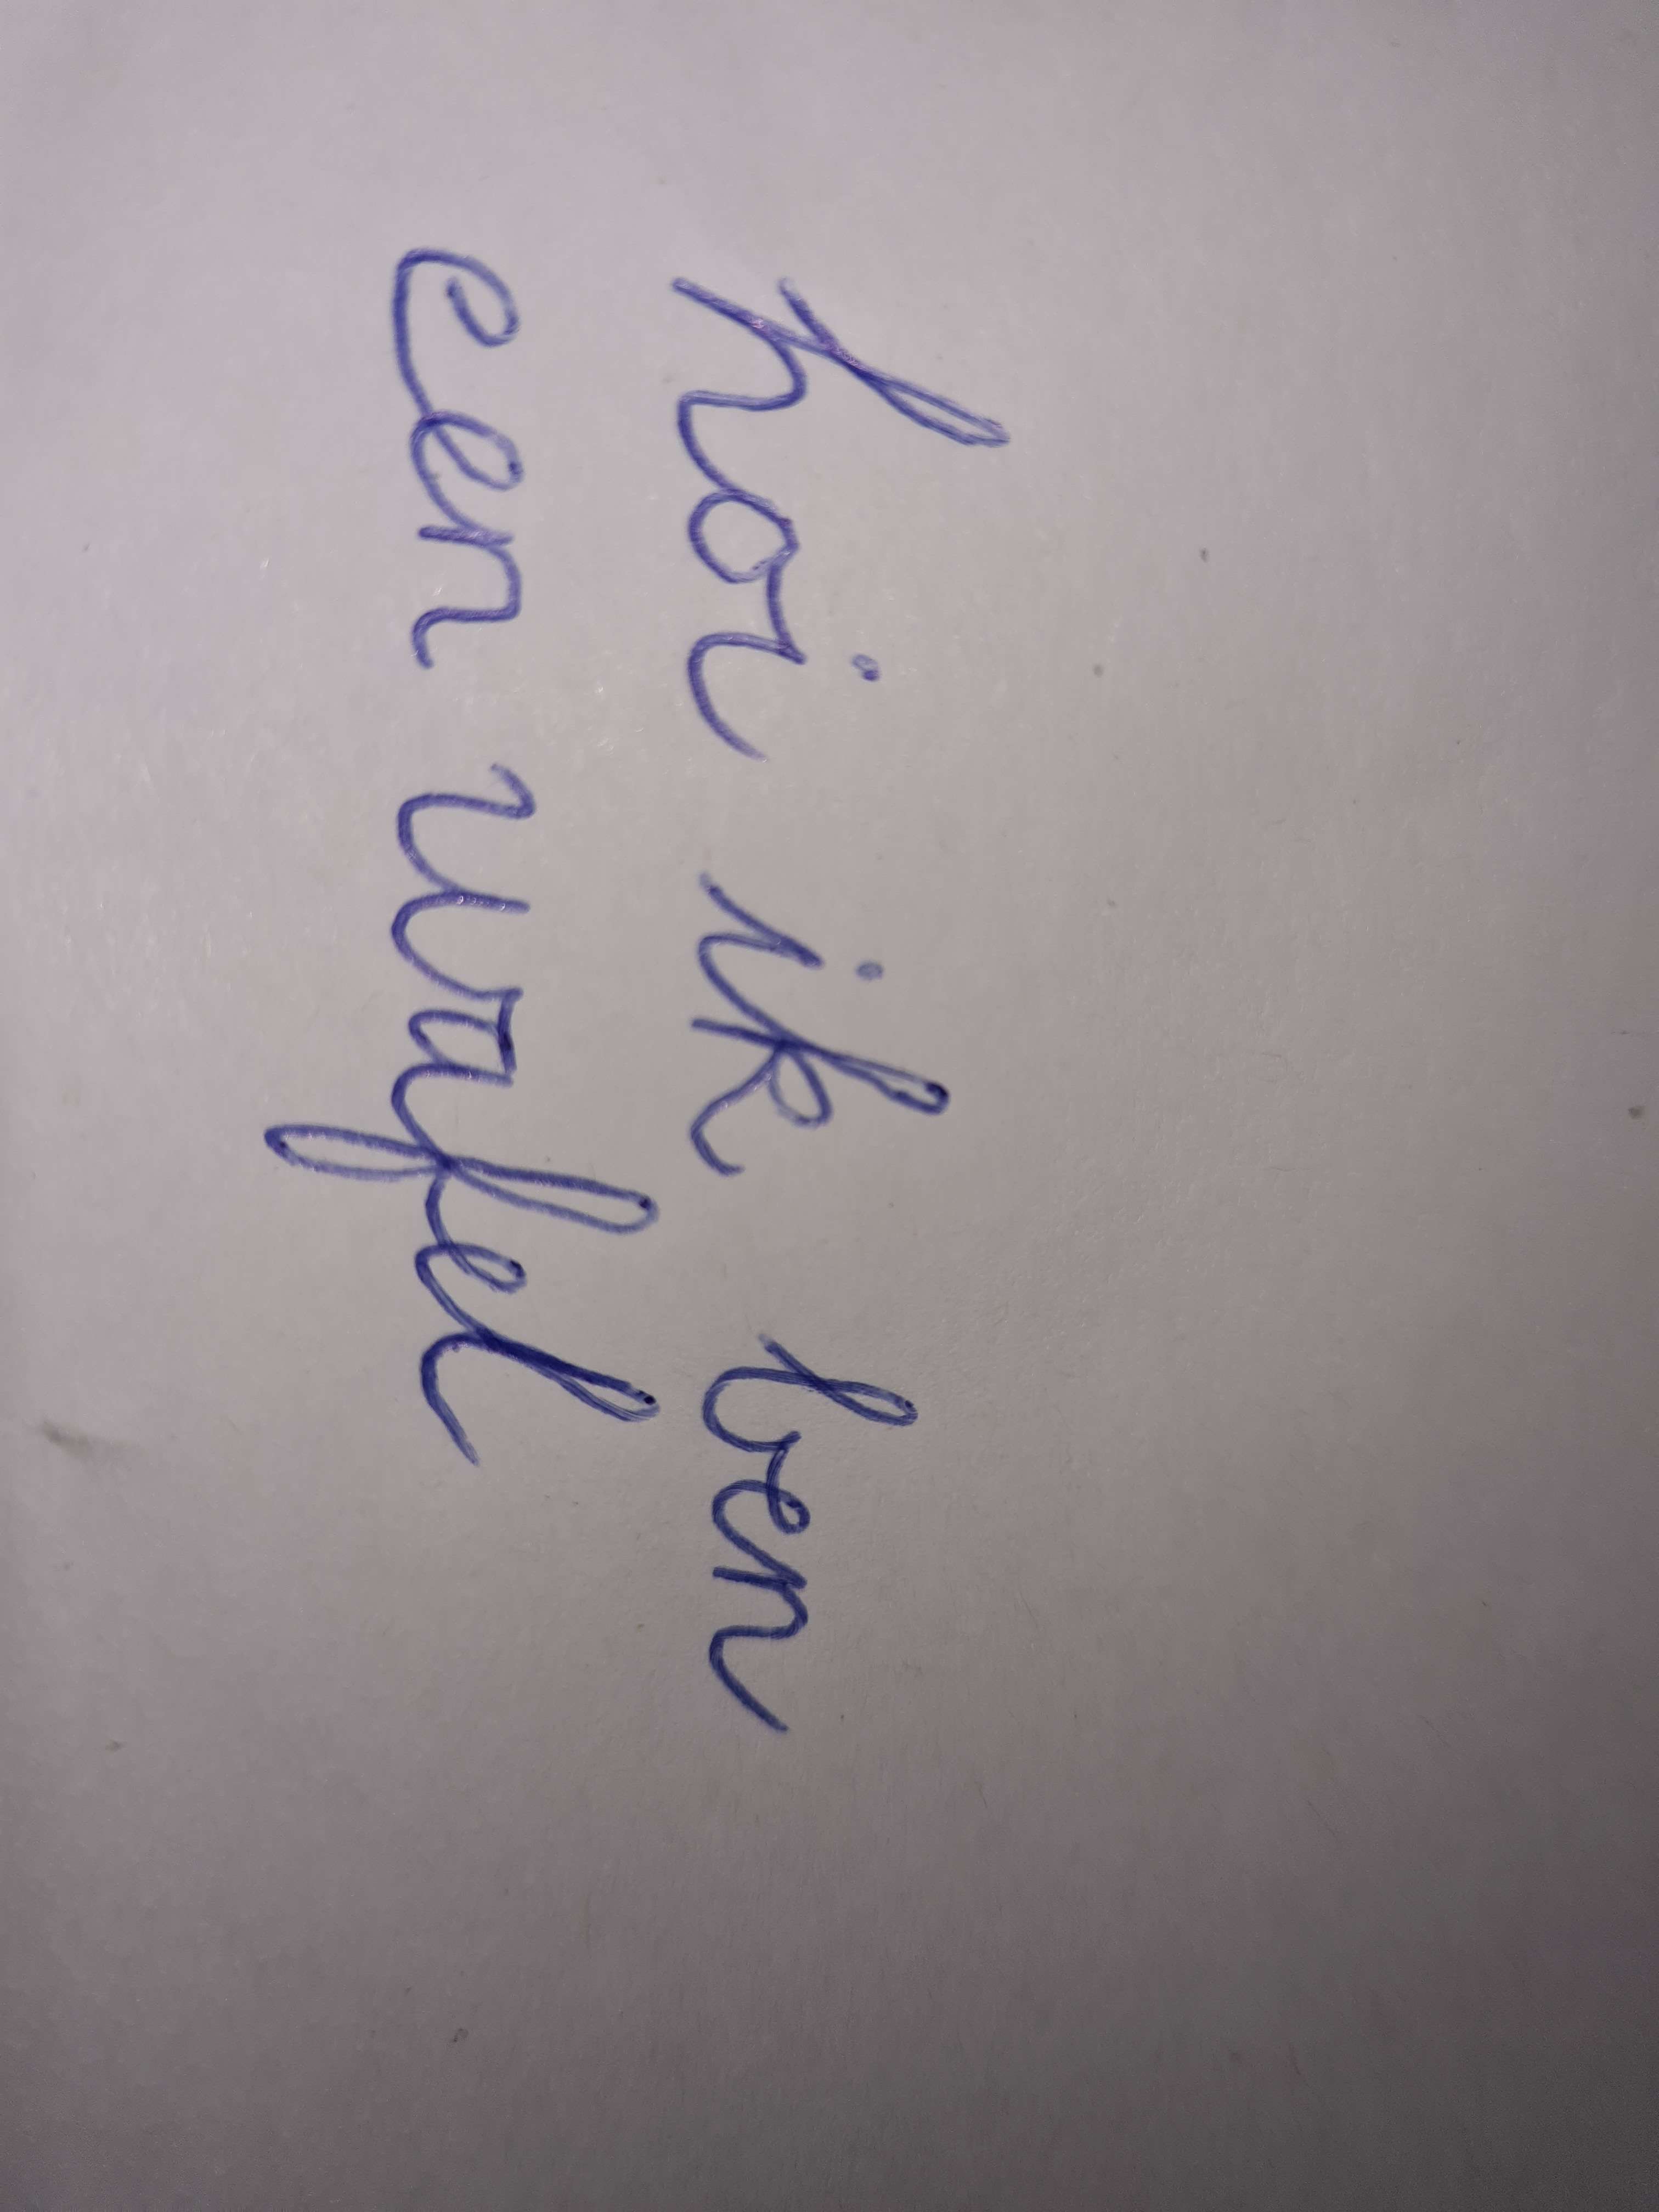 hoi ik ben
een wafel